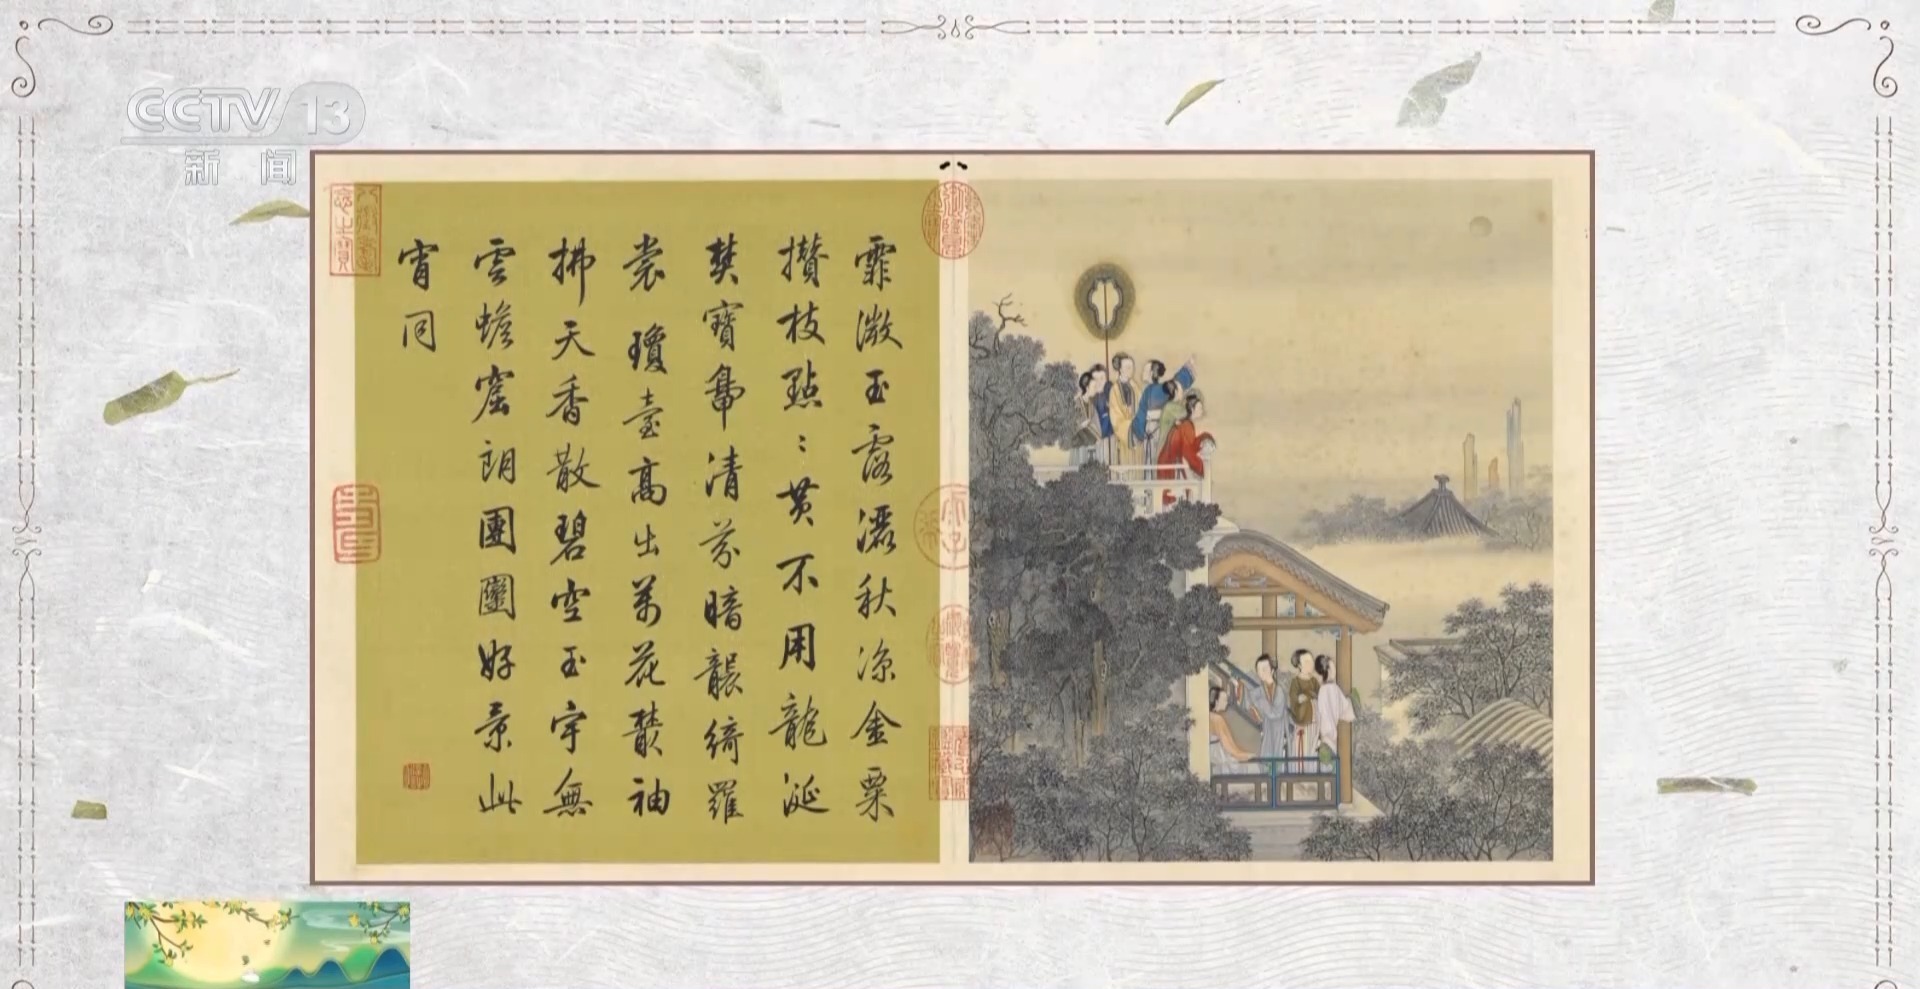 CCTV 13
新闻
霏微玉露濕秋凉金粟
攢枝點〻黄不用龍涎
焚寶鼎清芬暗襲綺羅
裳 瓊臺高出萬花叢袖
拂天香散碧空玉宇無
雲蟾窟朗團圞好景此
宵同